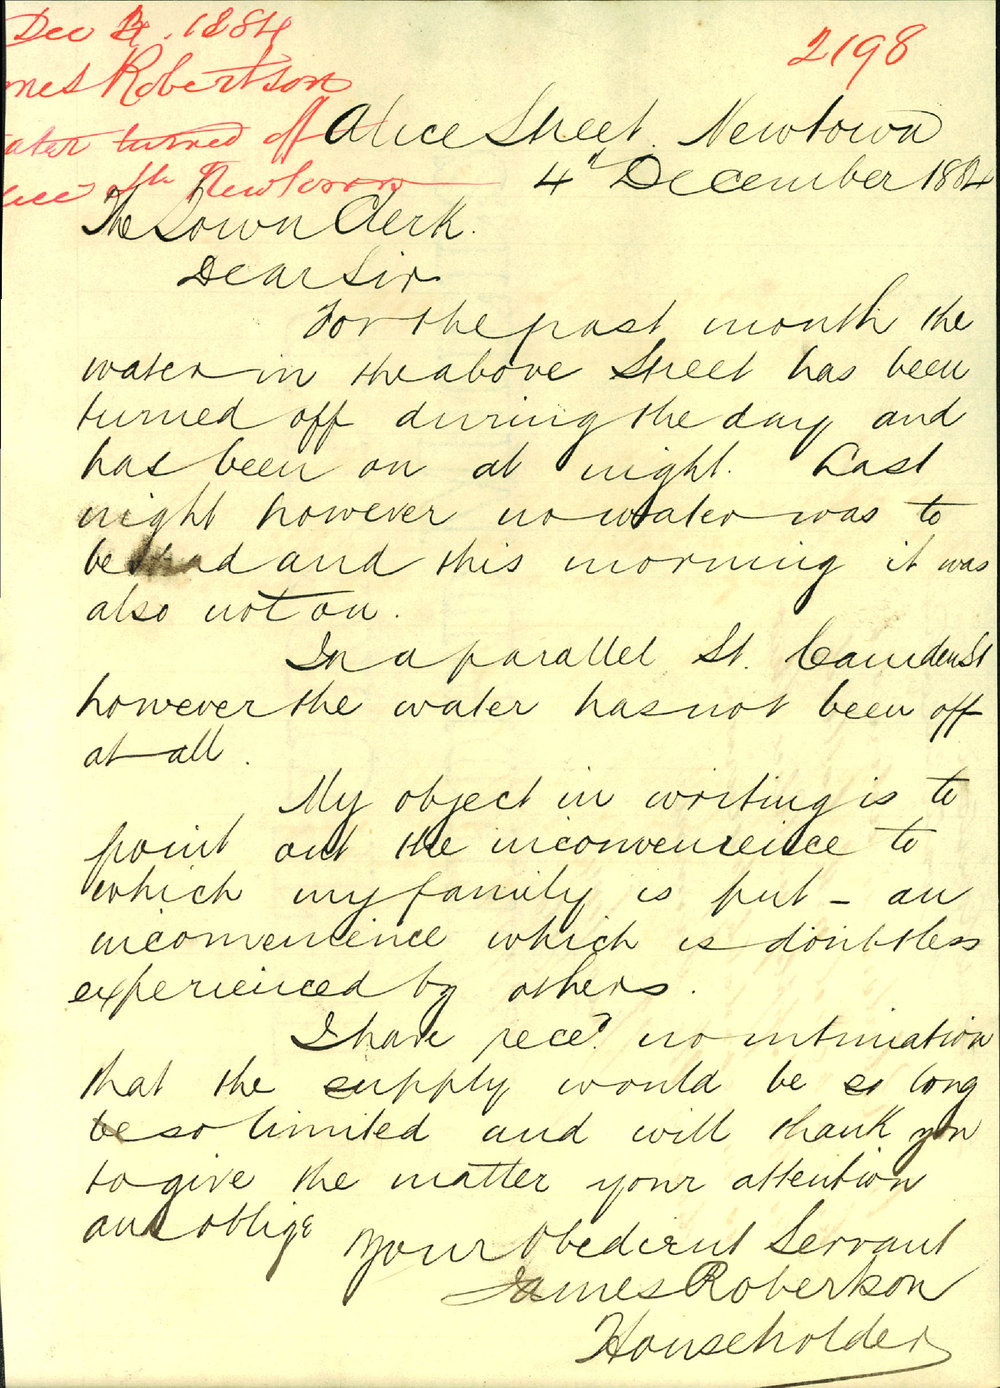 Dec 4. 1884
mes Robertson
ater turned off
lice St Newtown
2198
Alice Street. Newtown
4th December 1884
The Town Clerk.
Dear Sir
For the past month the
water in the above Street has been
turned off during the day and
has been on at night. Last
night however no water was to
be had and this morning it was
also not on.
In a parallel St. Camden St
however the water has not been off
at all.
My object in writing is to
point out the inconvenience to
which my family is put - an
inconvenience which is doubtless
experienced by others.
I have recd. no intimation
that the supply would be so long
be so limited and will thank you
to give the matter your attention
and oblige
Your Obedient Servant
James Robertson
Householder